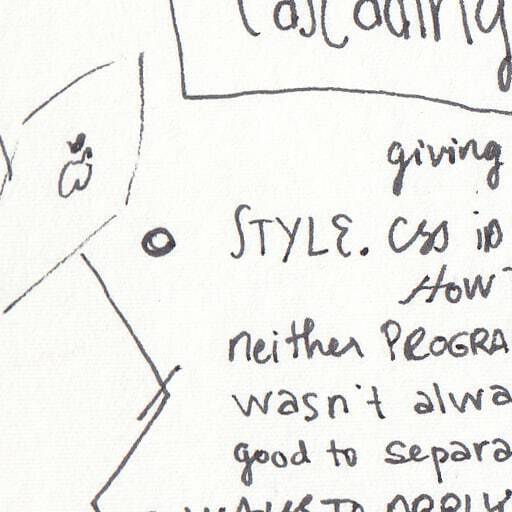 Cascading
giving
STYLE. CSS is
HOW
neither PROGRA
wasn't alwa
good to separa
WAYS TO APPLY